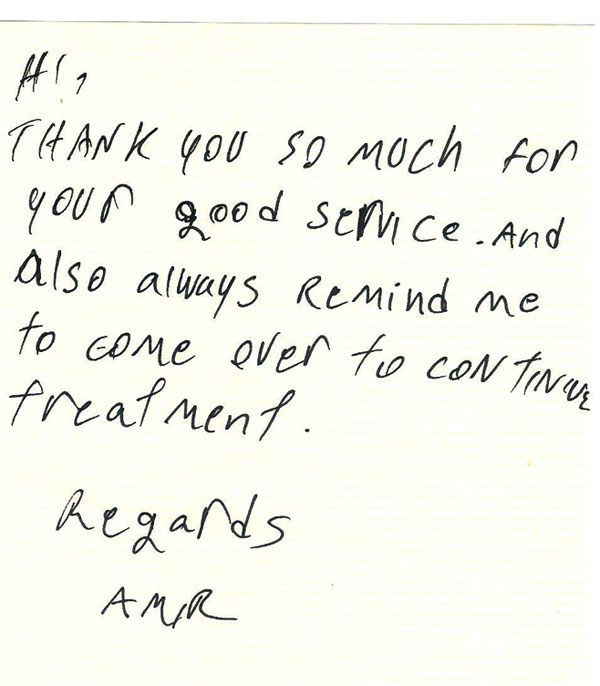 Hi,
THANK YOU SO MUCH for
your good service. And
Also always Remind me
to come over to continue
treatment.
Regards
AMIR